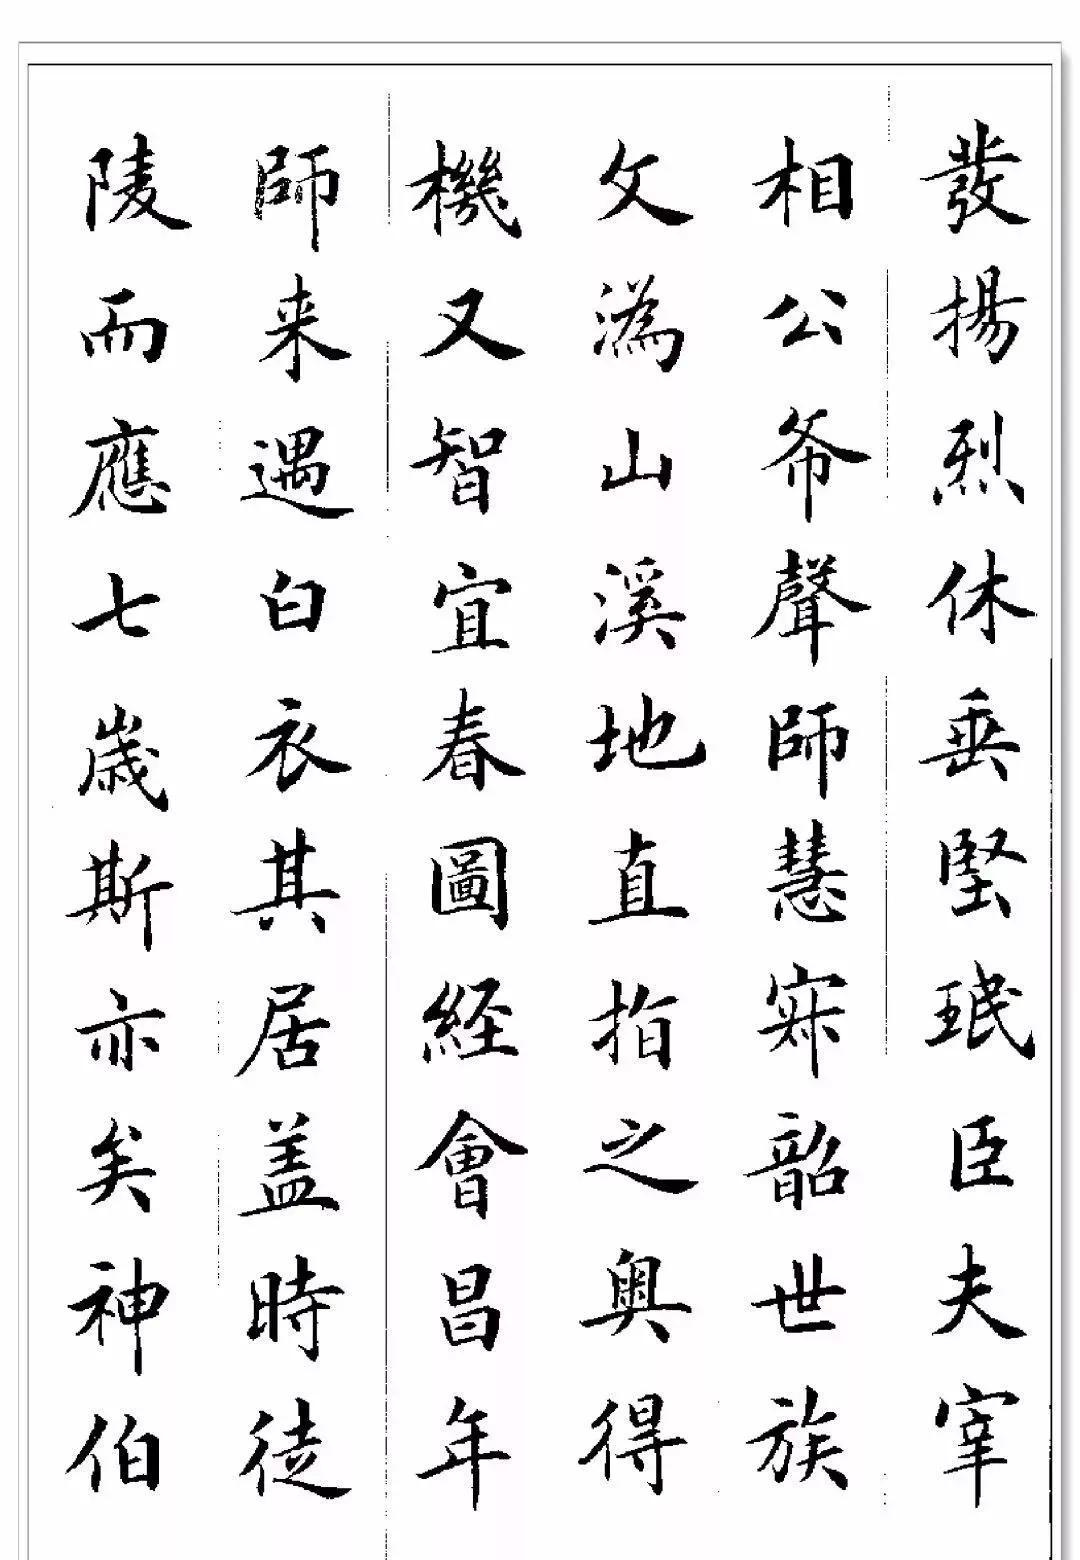 發揚烈休垂堅珉臣夫宰
相公爷聲師慧寂韶世族
文溈山溪地直指之奥得
機又智宜春圖經會昌年
師来遇白衣其居盖時徒
陵而應七歲斯亦矣神伯